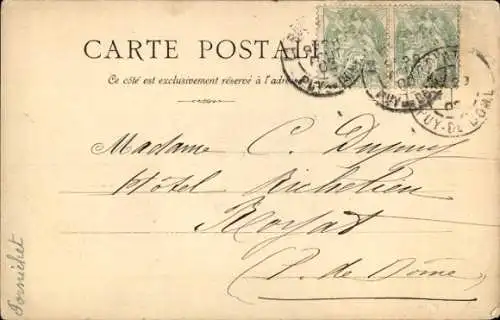 CARTE POSTALE
Ce côté est exclusivement réservé à l'adresse
PUY-DE-DOME
Madame C. Dupuy
Hôtel Richelieu
Royat
P. de Dôme
Pornichet